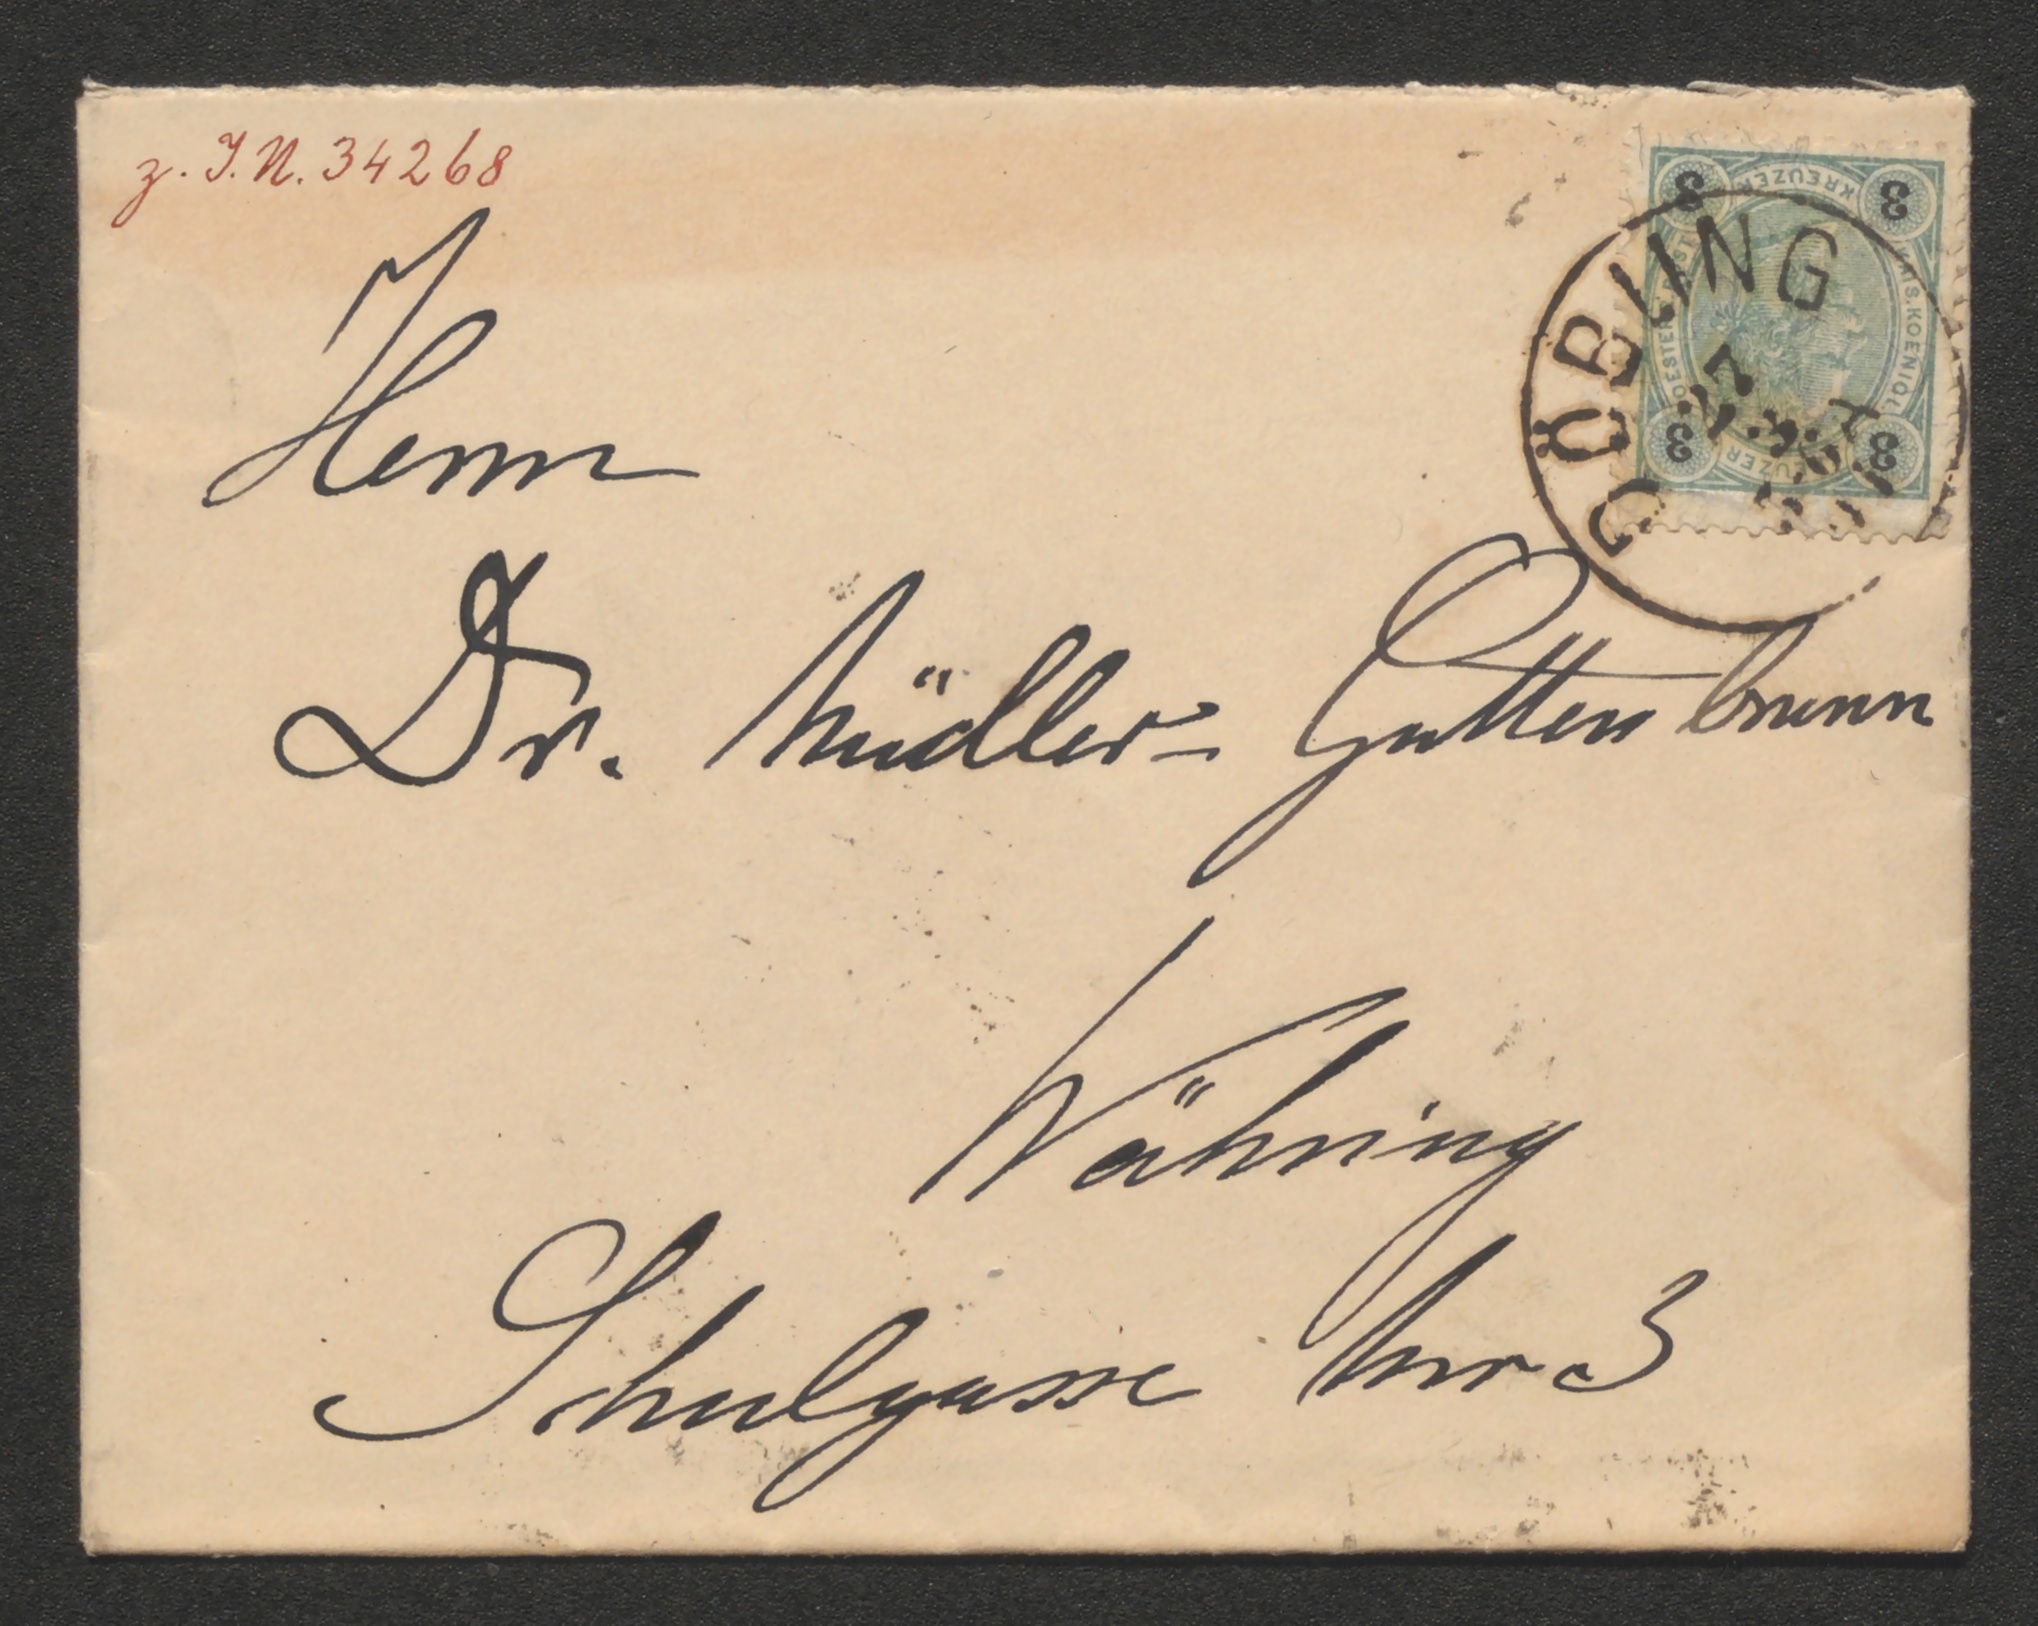 z. I.N. 34268
Herrn
Dr. Müller-Guttenbrunn
Währing
Schulgasse Nr 3
DÖBLING
3 KREUZER 3
KAIS. KOENIGL.
OESTERR. POST
3 KREUZER 3